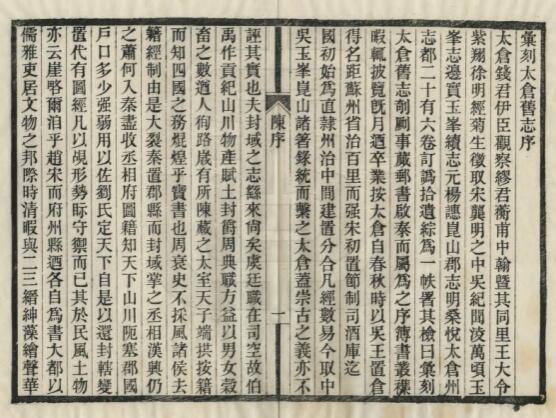 彙刻太倉舊志序
太倉錢君伊臣觀察繆君蘅甫中翰暨其同里王大令
紫翔徐明經菊生徵取宋龔明之中吳紀聞淩萬頃玉
峯志邊實玉峯續志元楊譓崑山郡志明桑悅太倉州
志都二十有六卷訂譌拾遺綜爲一帙署其檢曰彙刻
太倉舊志剞劂事蕆郵書啟泰而屬爲之序簿書叢襍
暇輒披覽旣月迺卒業按太倉自春秋時以吳王置倉
得名距蘇州省治百里而强宋初置節制司酒庫迄
國初始爲直隷州治中閒建置分合凡經數易今取中
吳玉峯崑山諸箸錄統而繫之太倉蓋崇古之義亦不
陳序
一
誣其實也夫封域之志繇來尙矣虞廷職在司空故伯
禹作貢紀山川物產賦土封爵周典職方益以男女穀
畜之數遒人徇路歲有所陳藏之太室天子端拱按籍
而知四國之務焜煌乎寶書也周衰史不採風諸侯去
籍經制由是大裂秦置郡縣而封域掌之丞相漢興仍
之蕭何入秦盡收丞相府圖籍知天下山川阨塞郡國
戶口多少强弱用以佐劉氏定天下自是以還封轄變
置代有圖經凡以覘形勢眎守禦而已其於民風土物
亦云崖略爾洎乎趙宋而府州縣迺各自爲書大都以
儒雅吏居文物之邦際時清暇與二三縉紳藻繪聲華